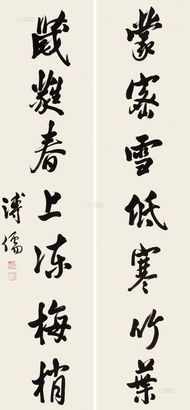 蒙密雪低寒竹葉
毿春上凍梅梢
溥儒